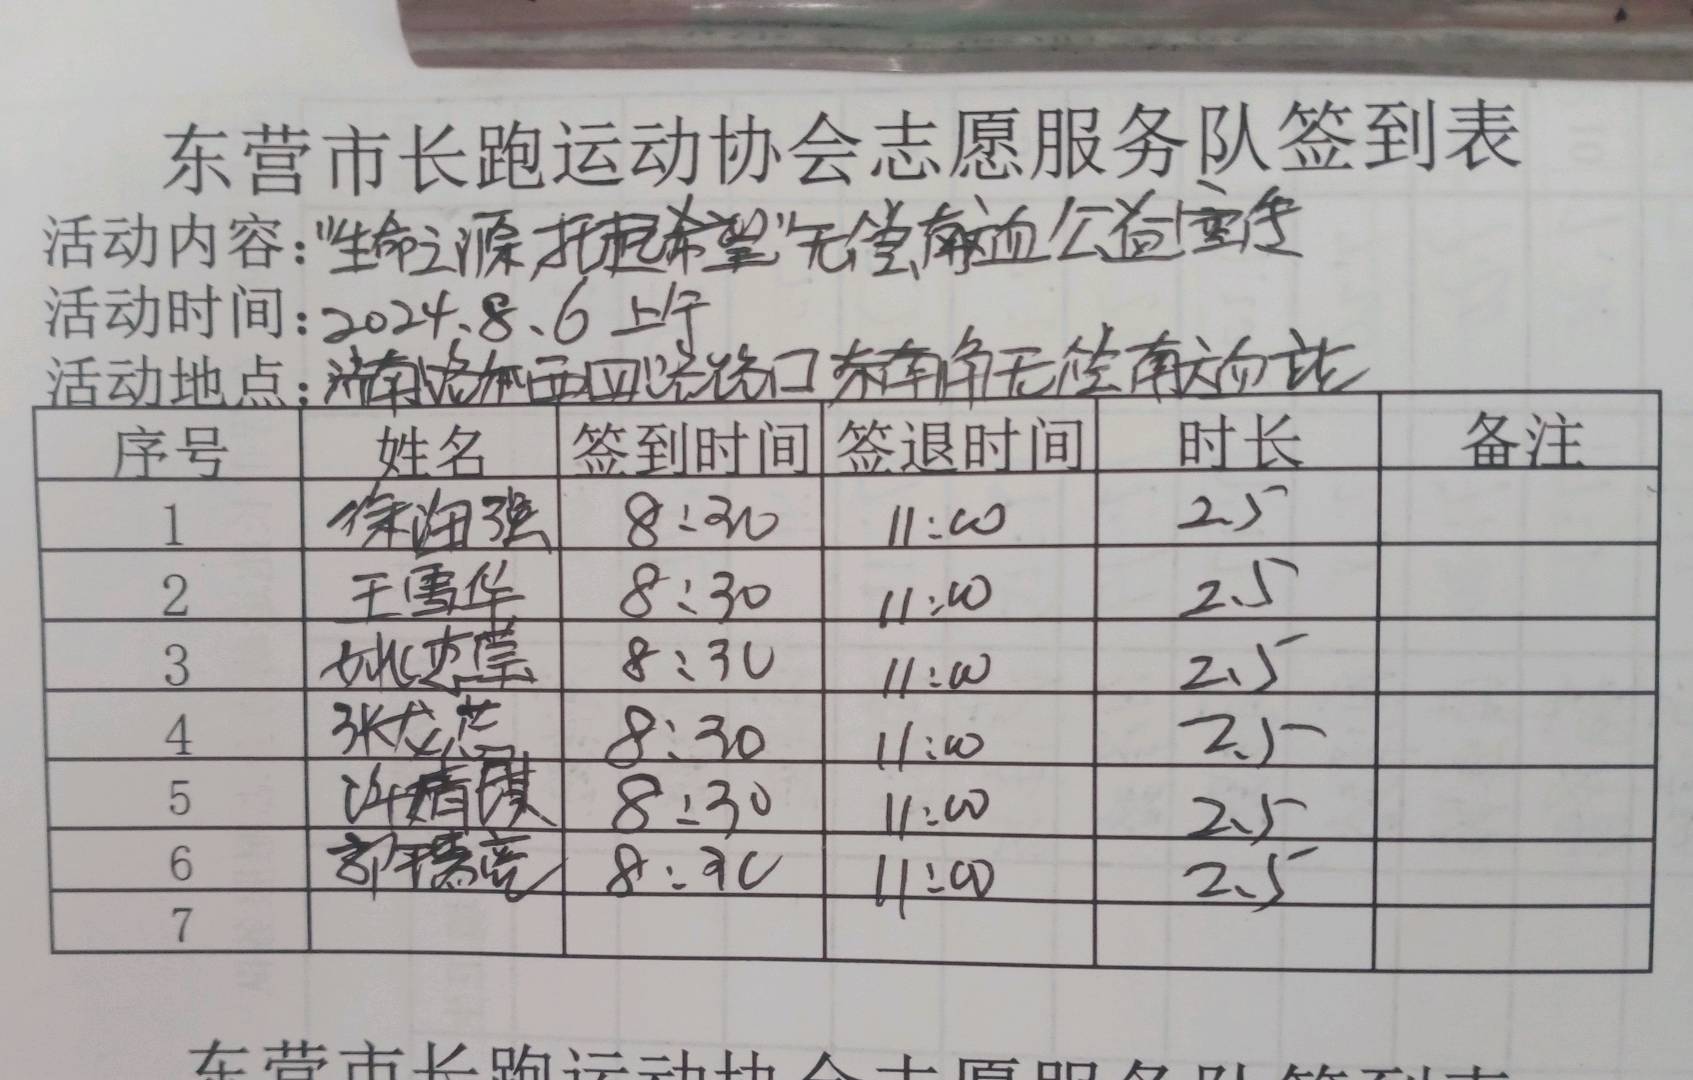 东营市长跑运动协会志愿服务队签到表
活动内容：“生命之源 托起希望”无偿献血公益宣传
活动时间：2024.8.6 上午
活动地点：济南路和西四路路口东南角无偿献血站
序号 姓名 签到时间 签退时间 时长 备注
1 徐海强 8:30 11:00 2.5
2 王雪华 8:30 11:00 2.5
3 姚 8:30 11:00 2.5
4 张龙 8:30 11:00 2.5
5 许 8:30 11:00 2.5
6 郭 亮 8:30 11:00 2.5
7
东营市长跑运动协会志愿服务队签到表